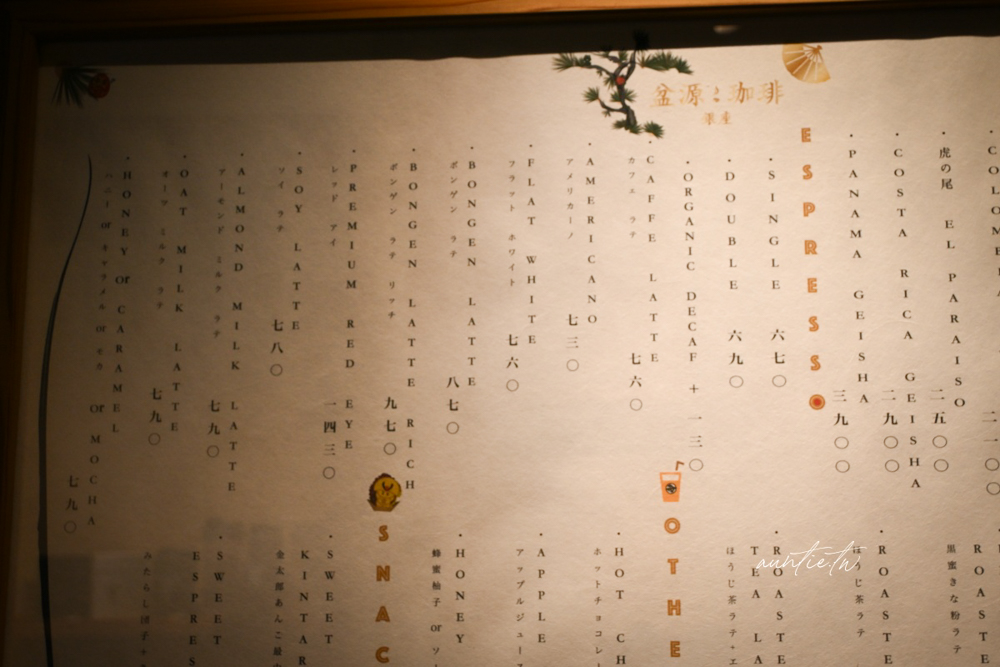 盆源と珈琲
銀座
虎の尾 EL PARAISO
二五〇〇
COSTA RICA GEISHA
二九〇〇
PANAMA GEISHA
三九〇〇
ESPRESSO
SINGLE
六七〇
DOUBLE
六九〇
ORGANIC DECAF + 一三〇
CAFFE LATTE
カフェ ラテ
七六〇
AMERICANO
アメリカーノ
七三〇
FLAT WHITE
フラット ホワイト
七六〇
BONGEN LATTE
ボンゲン ラテ
八七〇
BONGEN LATTE RICH
ボンゲン ラテ リッチ
九七〇
PREMIUM RED EYE
レッド アイ
一四三〇
SOY LATTE
ソイ ラテ
七八〇
ALMOND MILK LATTE
アーモンド ミルク ラテ
七九〇
OAT MILK LATTE
オーツ ミルク ラテ
七九〇
HONEY or CARAMEL or MOCHA
ハニー or キャラメル or モカ
七九〇
黒蜜きな粉ラテ
ほうじ茶ラテ
TEA LA
ほうじ茶ラテ+エ
OTHE
HOT CH
ホットチョコレ
APPLE
アップルジュース
HONEY
蜂蜜柚子 or ソ
SNAC
SWEET
KINTAR
金太郎あんこ最
SWEET
ESPRES
みたらし団子+
auntie.tw